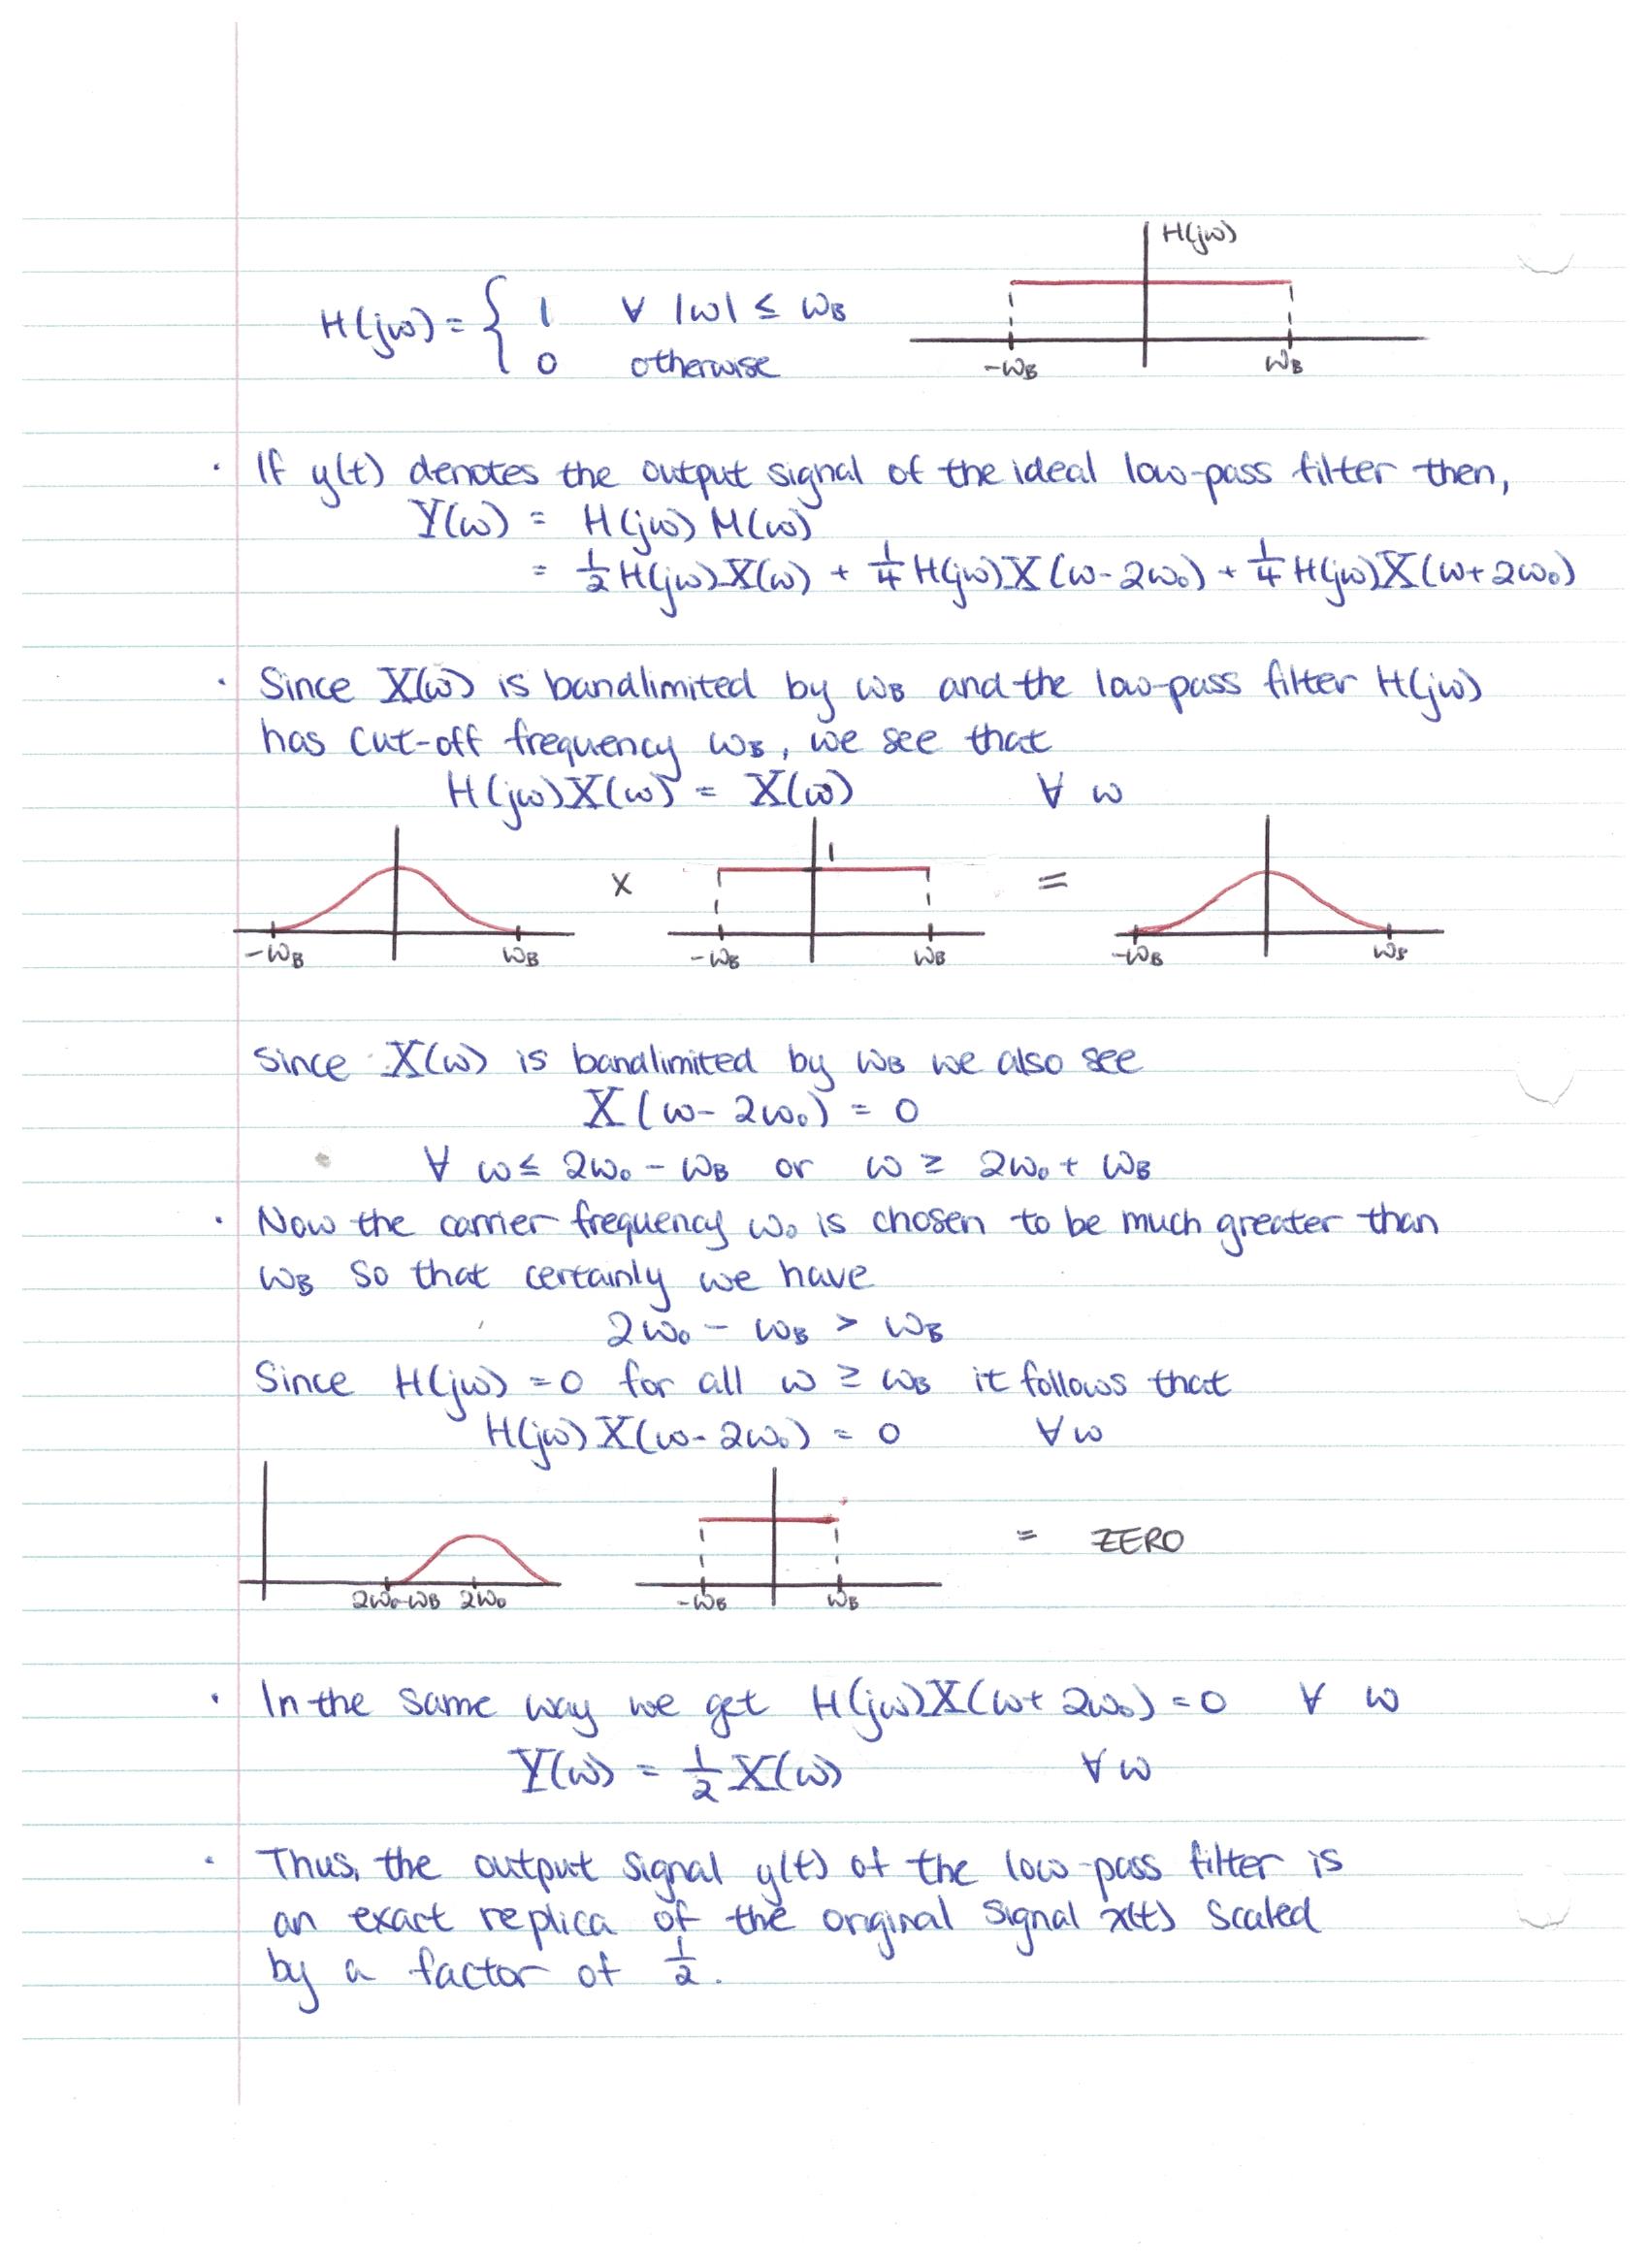 H(jω)
H(jω) = { 1 ∀ |ω| ≤ ωB
0 otherwise
-ωB ωB
· If y(t) denotes the output signal of the ideal low-pass filter then,
Y(ω) = H(jω) M(ω)
= 1/2 H(jω)X(ω) + 1/4 H(jω)X(ω-2ω₀) + 1/4 H(jω)X(ω+2ω₀)
· Since X(ω) is bandlimited by ωB and the low-pass filter H(jω)
has cut-off frequency ωB, we see that
H(jω)X(ω) = X(ω) ∀ ω
x 1 =
-ωB ωB -ωB ωB -ωB ωB
Since X(ω) is bandlimited by ωB we also see
X(ω-2ω₀) = 0
∀ ω ≤ 2ω₀ - ωB or ω ≥ 2ω₀ + ωB
· Now the carrier frequency ω₀ is chosen to be much greater than
ωB so that certainly we have
2ω₀ - ωB > ωB
Since H(jω) = 0 for all ω ≥ ωB it follows that
H(jω)X(ω-2ω₀) = 0 ∀ω
= ZERO
2ω₀-ωB 2ω₀ -ωB ωB
· In the same way we get H(jω)X(ω+2ω₀) = 0 ∀ ω
Y(ω) = 1/2 X(ω) ∀ω
· Thus, the output signal y(t) of the low-pass filter is
an exact replica of the original signal x(t) scaled
by a factor of 1/2.